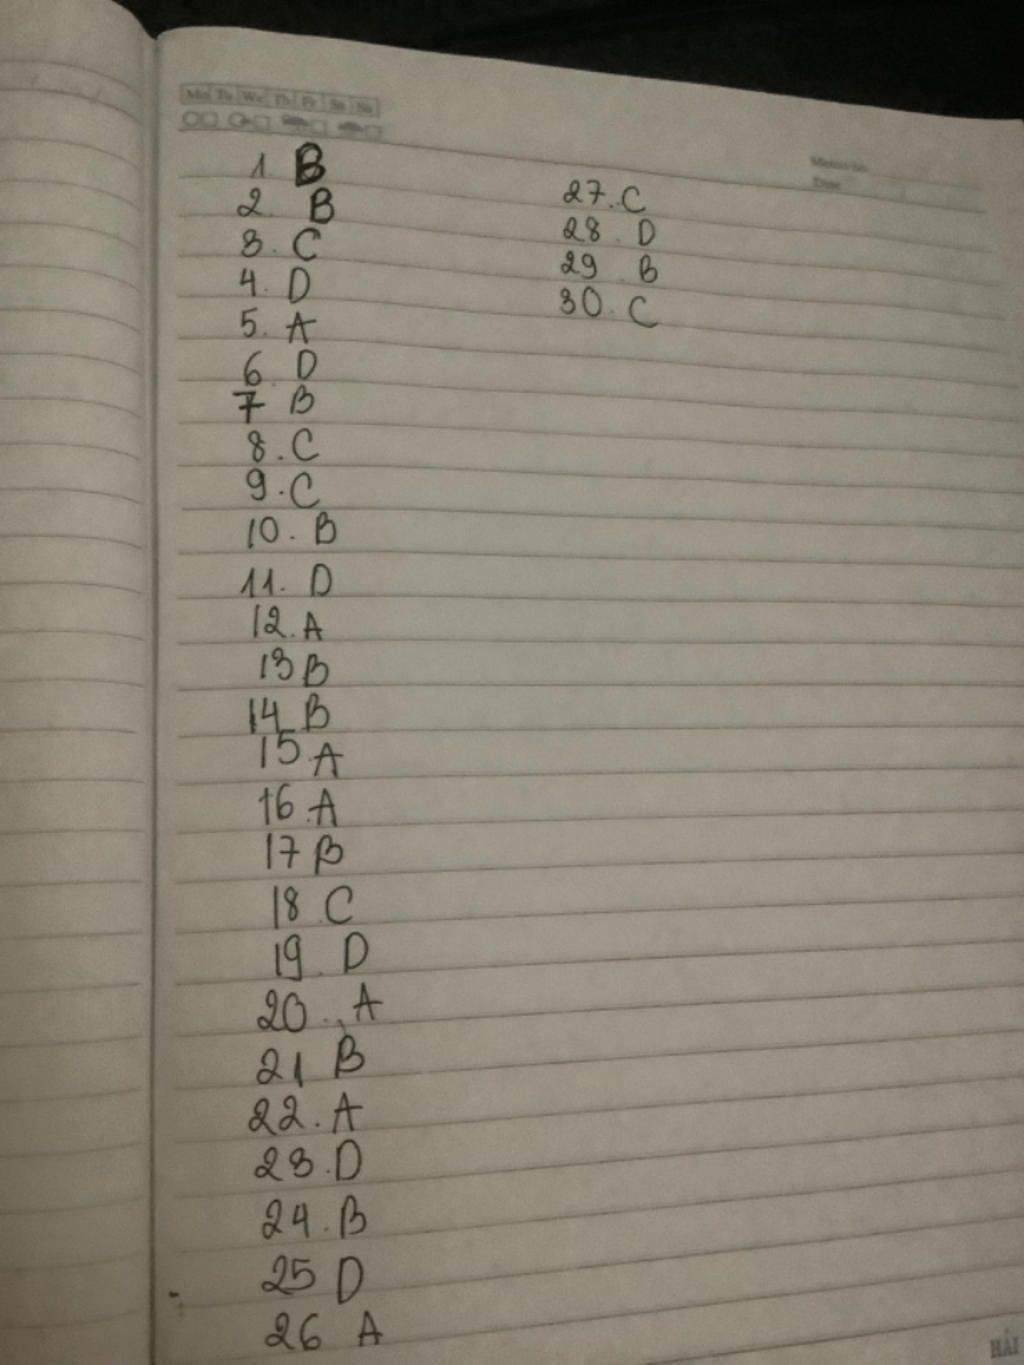 Mo Tu We Th Fr Sa Su
Memo No.
Date
1 B
2. B
3. C
4. D
5. A
6. D
7 B
8. C
9. C
10. B
11. D
12. A
13 B
14 B
15. A
16. A
17 B
18 C
19. D
20.. A
21 B
22. A
23. D
24. B
25 D
26 A
27.. C
28. D
29 B
30. C
HẢI